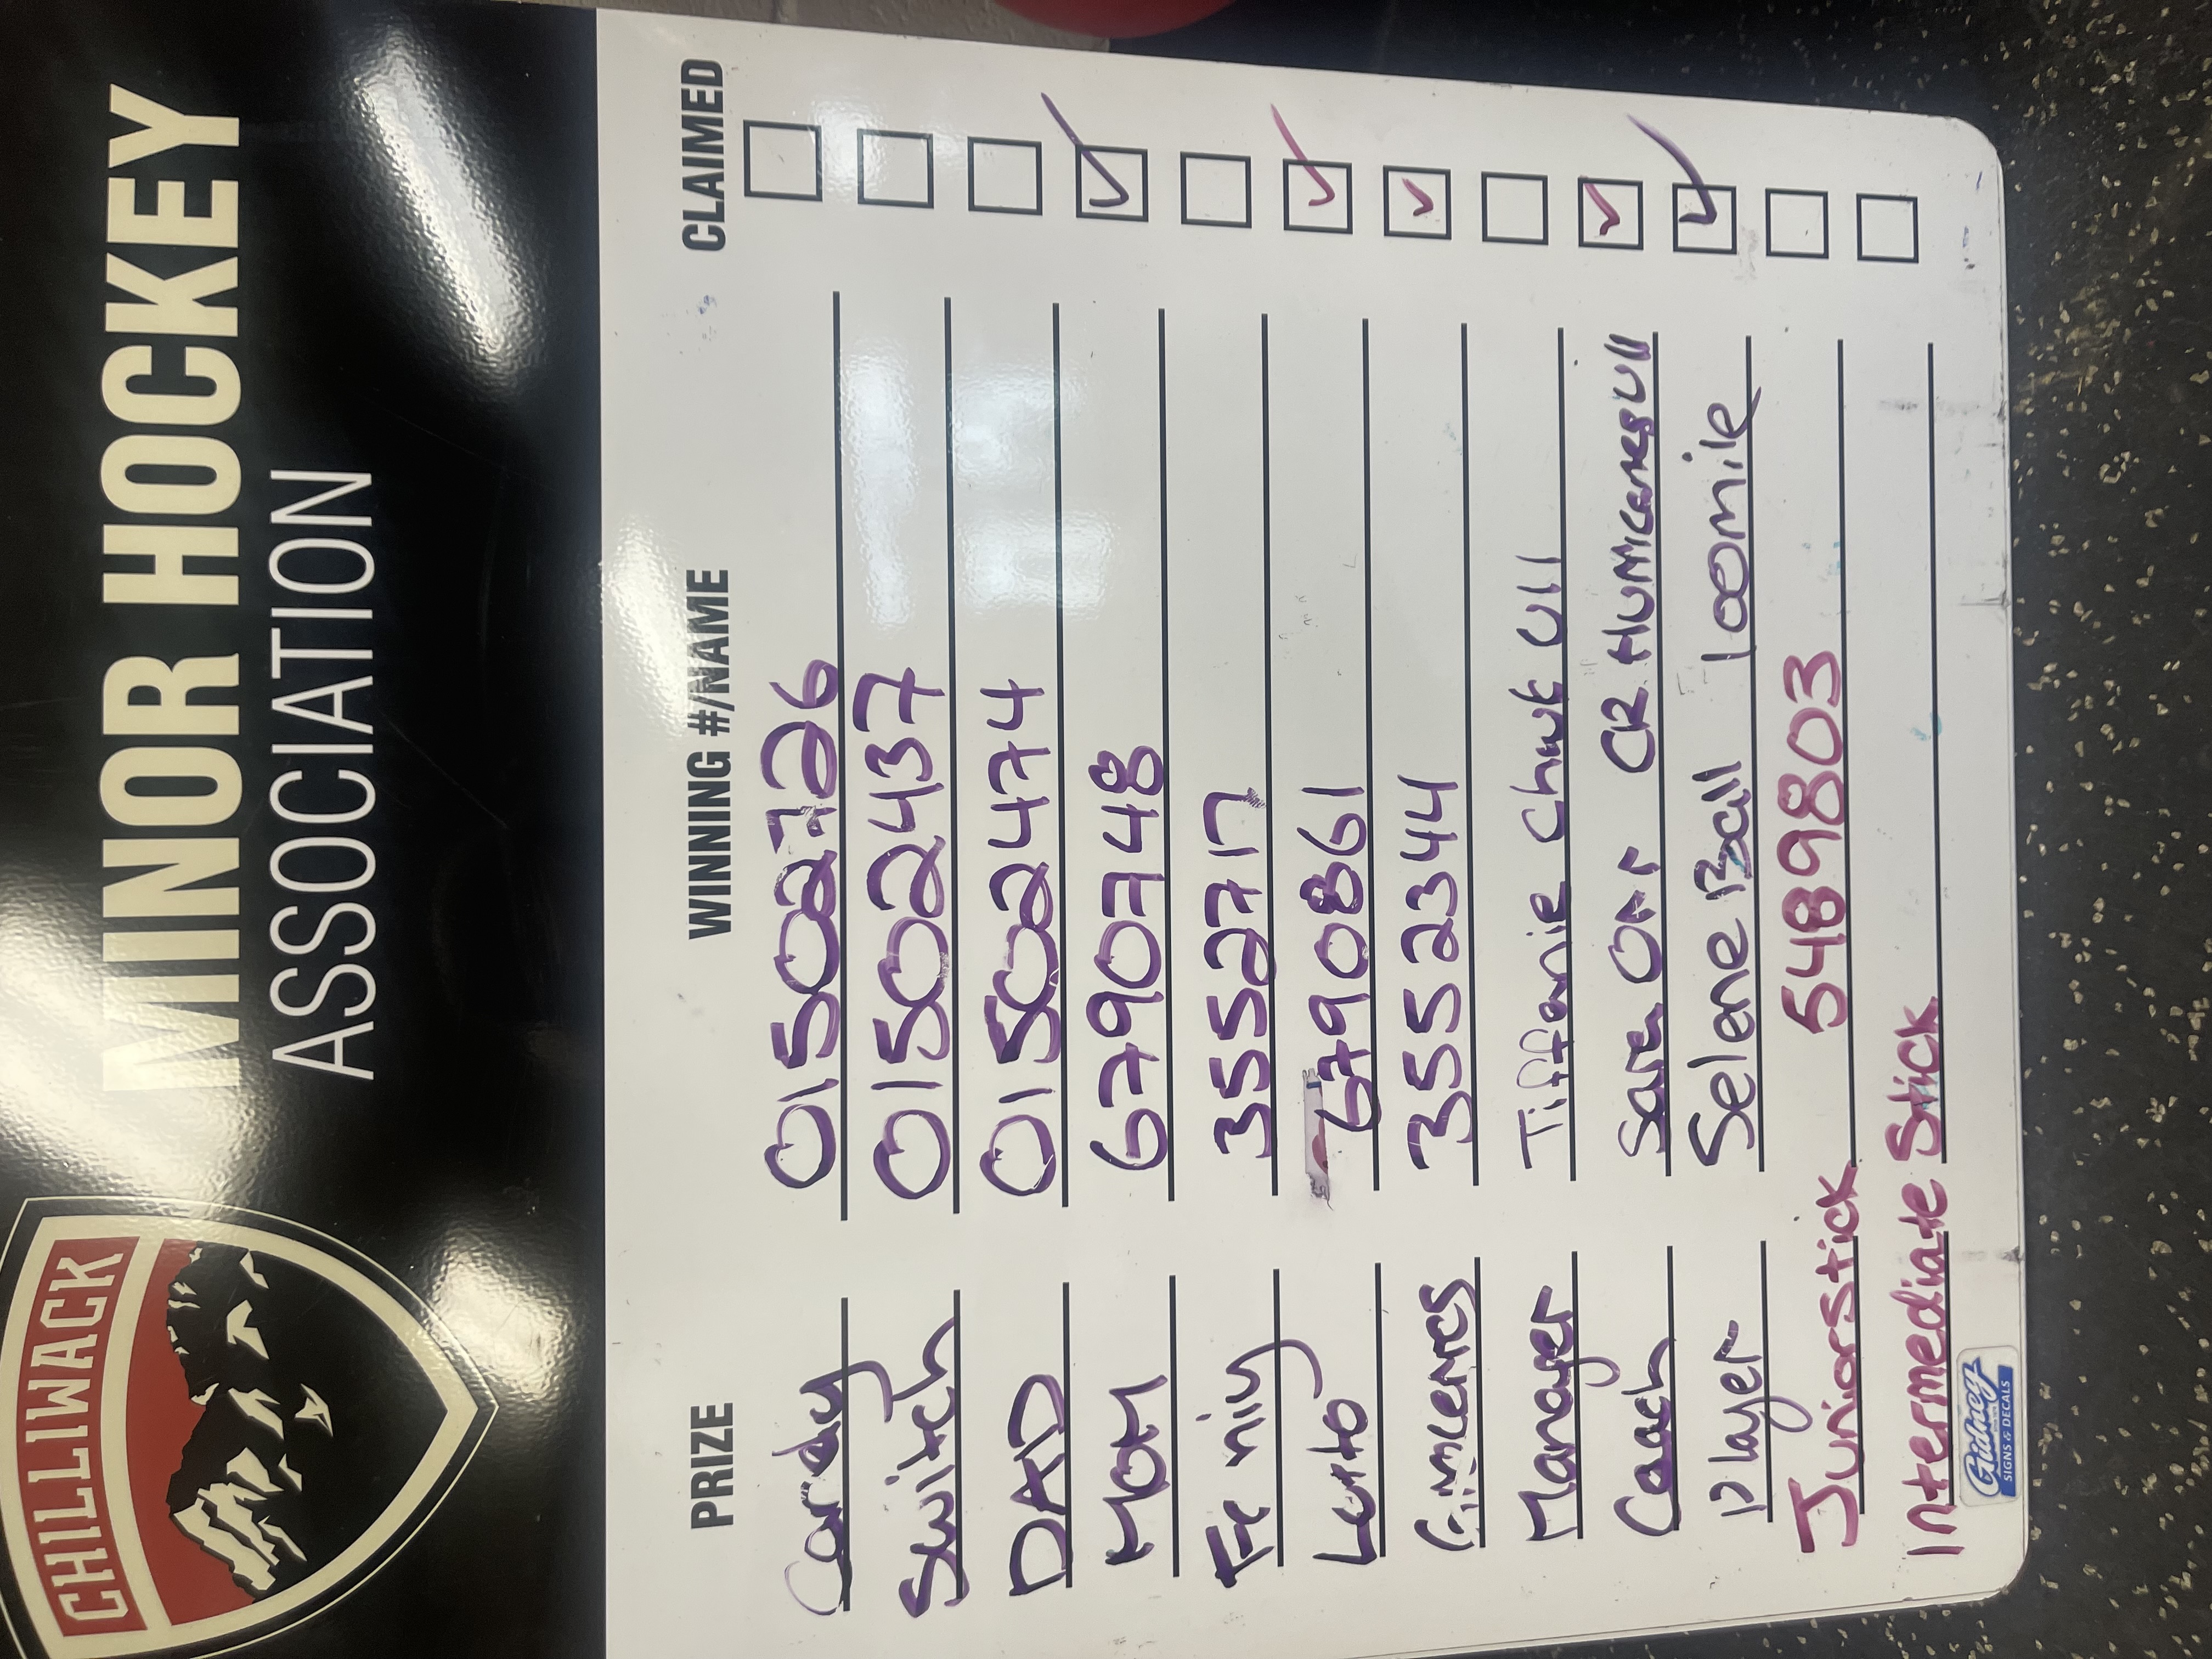 CHILLIWACK
MINOR HOCKEY
ASSOCIATION
PRIZE WINNING #/NAME CLAIMED
Candy 01502726
Switch 01502437
DAD 01502474
MOM 6790748
Family 3552717
Lotto 6790861
3552344
Manager Tiffanie Chuk U11
Coach Sara Orr CR Hurricanes U11
Player Selene Ball 100mile
Junior Stick 5489803
Intermediate Stick
Gidney
SIGNS & DECALS